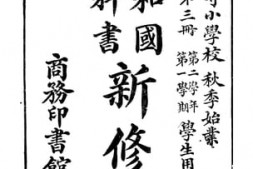 等小學校 秋季始業
第三冊 第二學年 第一學期 學生用
和國
科書
新修
商務印書館